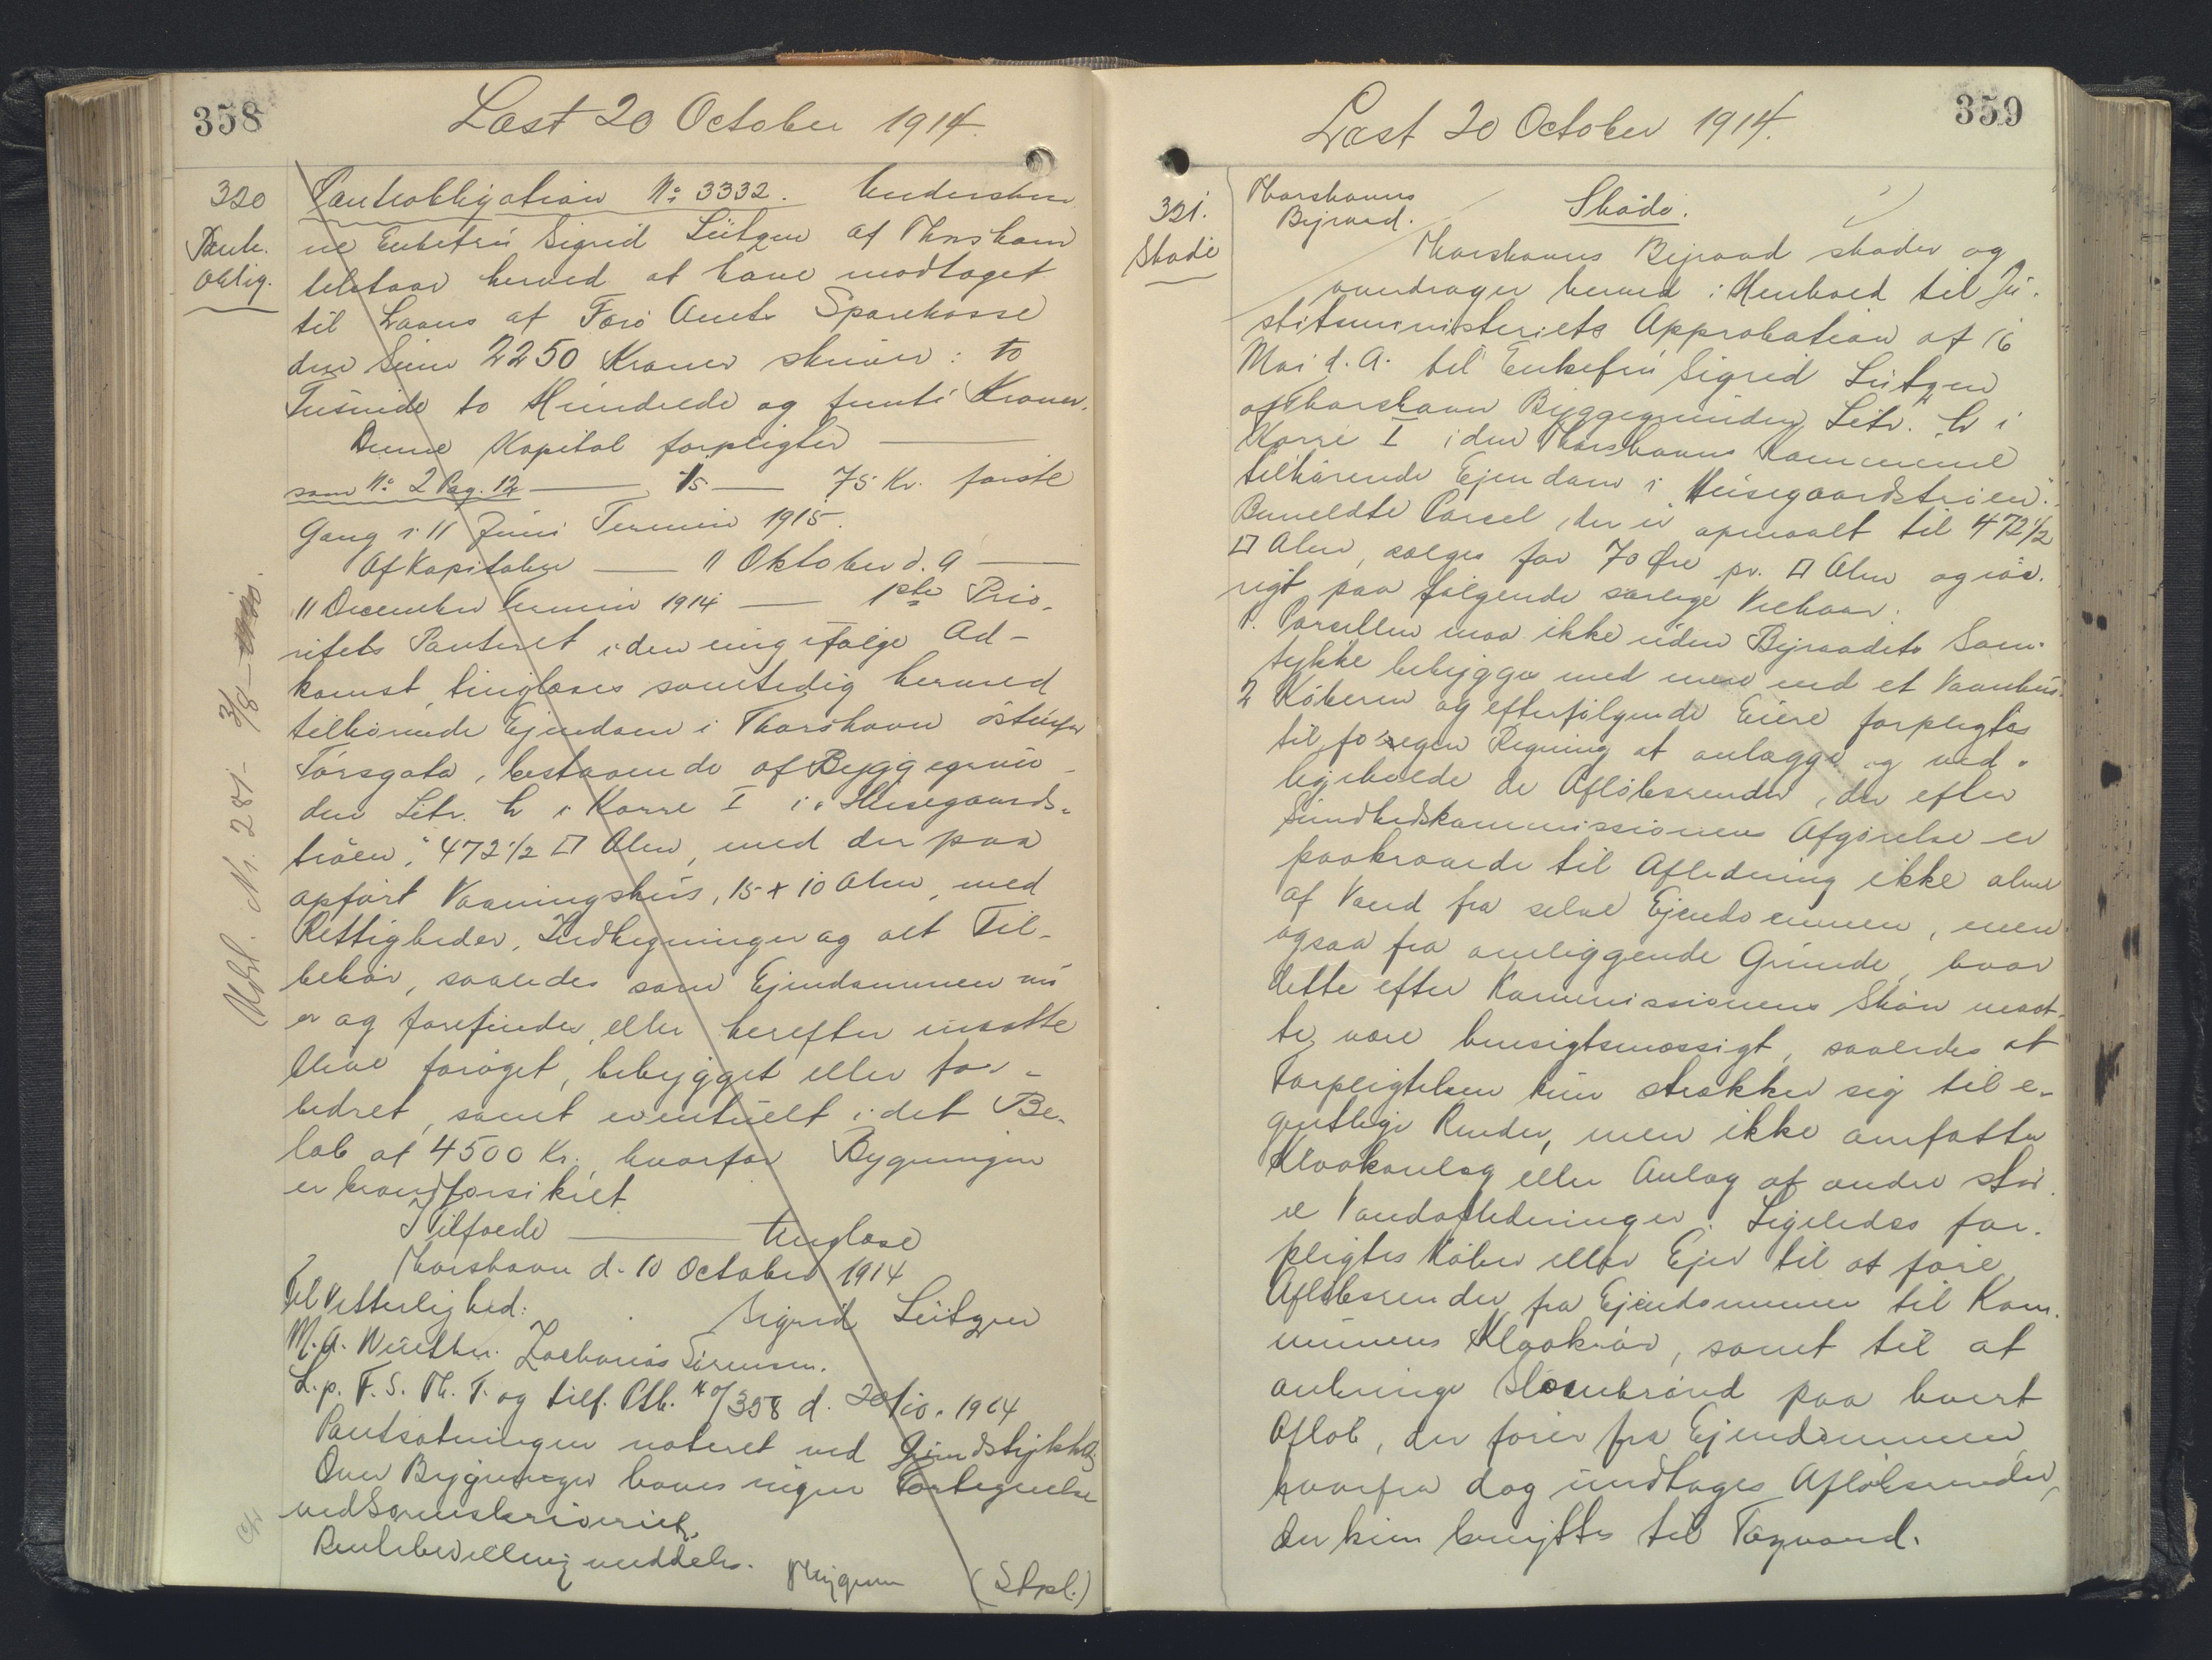 358
Læst 20 October 1914.
320
Pant.
Oblig.
Pantobligation No 3332. Underskrev
ne Enkefrú Sigrid Lützen af Thorshavn
tilstaar herved at have modtaget
til Laans af Færö Amts Sparekasse
den Súm 2250 Kroner skriver: to
Túsinde to Húndrede og femti Kroner.
Denne Kapital forpligter
som No 2 Pag. 12 — 1/5 — 75 Kr. første
Gang i 11 Júni Termin 1915.
Af Kapitalen — 11 Oktober d. A —
11 December Termin 1914 — 1ste Prio-
ritets Panteret i den mig ifølge Ad-
komst, tinglæses samtidig hermed
tilhørende Ejendom i Thorshavn östúrfor
Tórsgøta, bestaaende af Byggegrún-
den Litr. h i Karré I i "Húsegaards-
tröen", 472 1/2 □ Alen, med der paa
opført Vaaningshús, 15 x 10 Alen, med
Rettigheder, Indhegninger og alt Til-
behør, saaledes som Ejendommen nú
er og forefindes, eller herefter maatte
blive forøget, bebygget eller for-
bedret, samt eventúelt i det Be-
løb af 4500 Kr., hvorfor Bygningen
er brandforsikret.
I Tilfælde — tinglæse
Thorshavn d. 10 October 1914
Til Vitterlighed: Sigrid Lützen
M. A. Winther. Zacharias Sörensen.
L. p. F. S. Th. T. og tilf. Ptb. No/358 d. 20/10. 1914
Pantsætningen noteret ved Grúndstykket
Over Bygninger haves ingen Fortegnelse
ved Sorenskriveriet.
Rentebevilling meddeles.
(Stpl.)
Udsl. Nr. 281 - 3/8 -
359
Læst 20 October 1914.
321.
Skøde
Thorshavns
Byraad.
Skøde.
Thorshavns Byraad skøder og
overdrager herved i Henhold til Jú-
stitsministeriets Approbation af 16
Mai d. A. til Enkefrú Sigrid Lützen
af Thorshavn Byggegrúnden Litr. h i
Karré I i den Thorshavns Kommune
tilhørende Ejendom i "Húsegaardströen".
Bemeldte Parcel, der er opmaalt til 472 1/2
□ Alen, sælges for 70 Øre pr. □ Alen og iøv-
rigt paa følgende særlige Vilkaar:
1. Parcellen maa ikke úden Byraadets Sam-
tykke bebygges med mere end et Vaanhús.
2 Køberen og efterfølgende Eiere forpligtes
til for egen Regning at anlægge og ved-
ligeholde de Afløbsrender, der efter
Súndhedskommissionens Afgørelse er
paakrævede til Afledning ikke alene
af Vand fra selve Ejendommen, men
ogsaa fra omliggende Grúnde, hvor
dette efter Kommissionens Skøn maat-
te være hensigtsmæssigt, saaledes at
Forpligtelsen kún strækker sig til e-
gentlige Render, men ikke omfatter
Kloakanlæg eller Anlæg af andre stør-
re Vandafledninger. Ligeledes for-
pligtes Køber eller Ejer til at føre
Afløbsrender fra Ejendommen til Kom-
múnens Kloakrør, samt til at
anbringe Slambrønd paa hvert
Afløb, der fører fra Ejendommen
hvorfra dog úndtages Afløbsrender,
der kún benyttes til Tagvand.